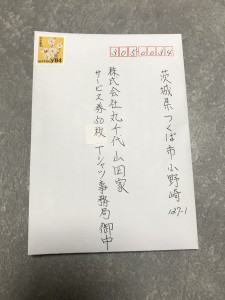 84
3050034
茨城県つくば市小野崎
127-1
株式会社丸千代山岡家
サービス券50枚 Tシャツ事務局 御中